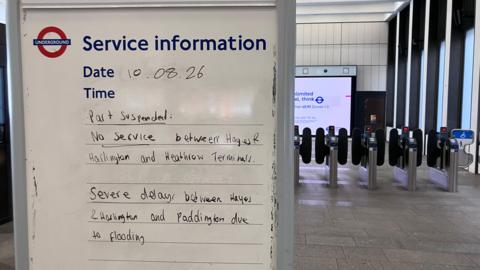 UNDERGROUND
Service information
Date 10.08.26
Time
Part Suspended:
No Service between Hayes &
Harlington and Heathrow Terminals.
Severe delays between Hayes
& Harlington and Paddington due
to flooding